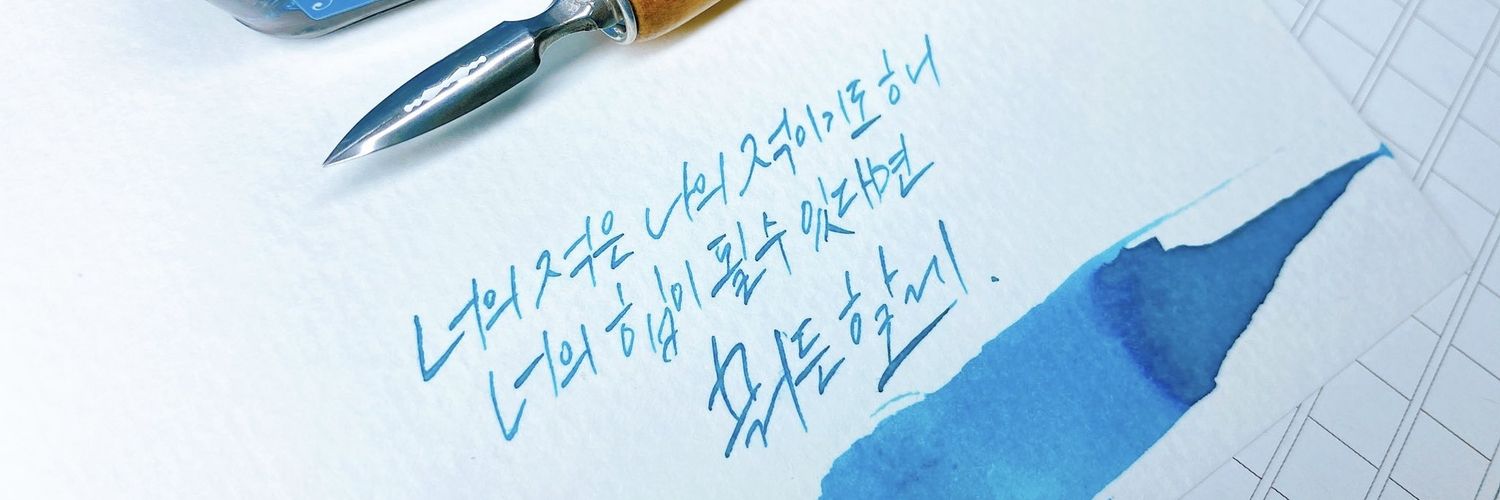 너의 적은 나의 적이기도 하니
너의 힘이 될 수 있다면
뭐든 할게.